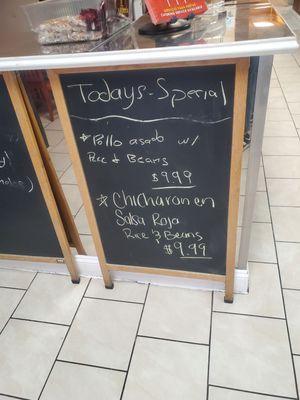 Todays-Special
* Pollo asado w/
Rice & Beans
$9.99
* Chicharon en
Salsa Roja
Rice & Beans
$9.99